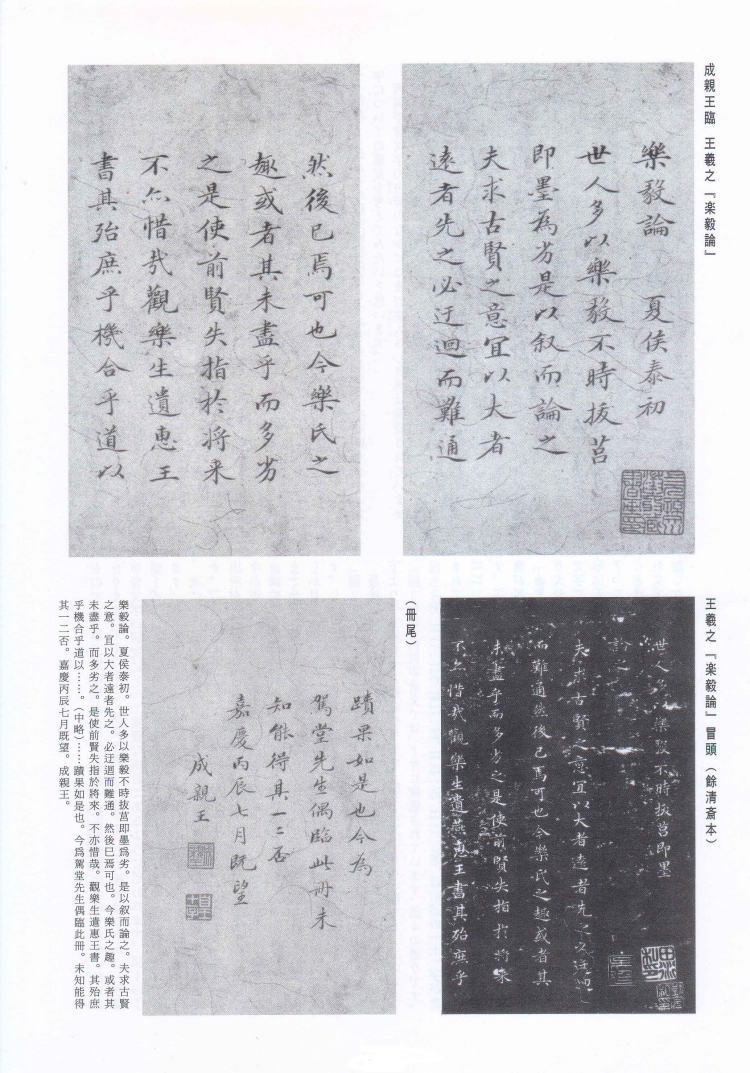 成親王臨　王羲之『楽毅論』
樂毅論　夏侯泰初
世人多以樂毅不時拔莒
即墨為劣是以叙而論之
夫求古賢之意宜以大者
遠者先之必迂迴而難通
然後已焉可也今樂氏之
趣或者其未盡乎而多劣
之是使前賢失指於将来
不亦惜哉觀樂生遺惠王
書其殆庶乎機合乎道以
王羲之『楽毅論』冒頭（餘清斎本）
世人多以樂毅不時拔莒即墨
論之
夫求古賢之意宜以大者遠者先之必迂迴
而難通然後已焉可也今樂氏之趣或者其
未盡乎而多劣之是使前賢失指於將来
不亦惜哉觀樂生遺燕惠王書其殆庶乎
（冊尾）
蹟果如是也今為
駕堂先生偶臨此冊未
知能得其一二否
嘉慶丙辰七月既望
成親王
樂毅論。夏侯泰初。世人多以樂毅不時抜莒即墨爲劣。是以叙而論之。夫求古賢
之意。宜以大者遠者先之。必迂迴而難通。然後已焉可也。今樂氏之趣。或者其
未盡乎。而多劣之。是使前賢失指於將來。不亦惜哉。觀樂生遣惠王書。其殆庶
乎機合乎道以……。（中略）……蹟果如是也。今爲駕堂先生偶臨此冊。未知能得
其一二否。嘉慶丙辰七月既望。成親王。